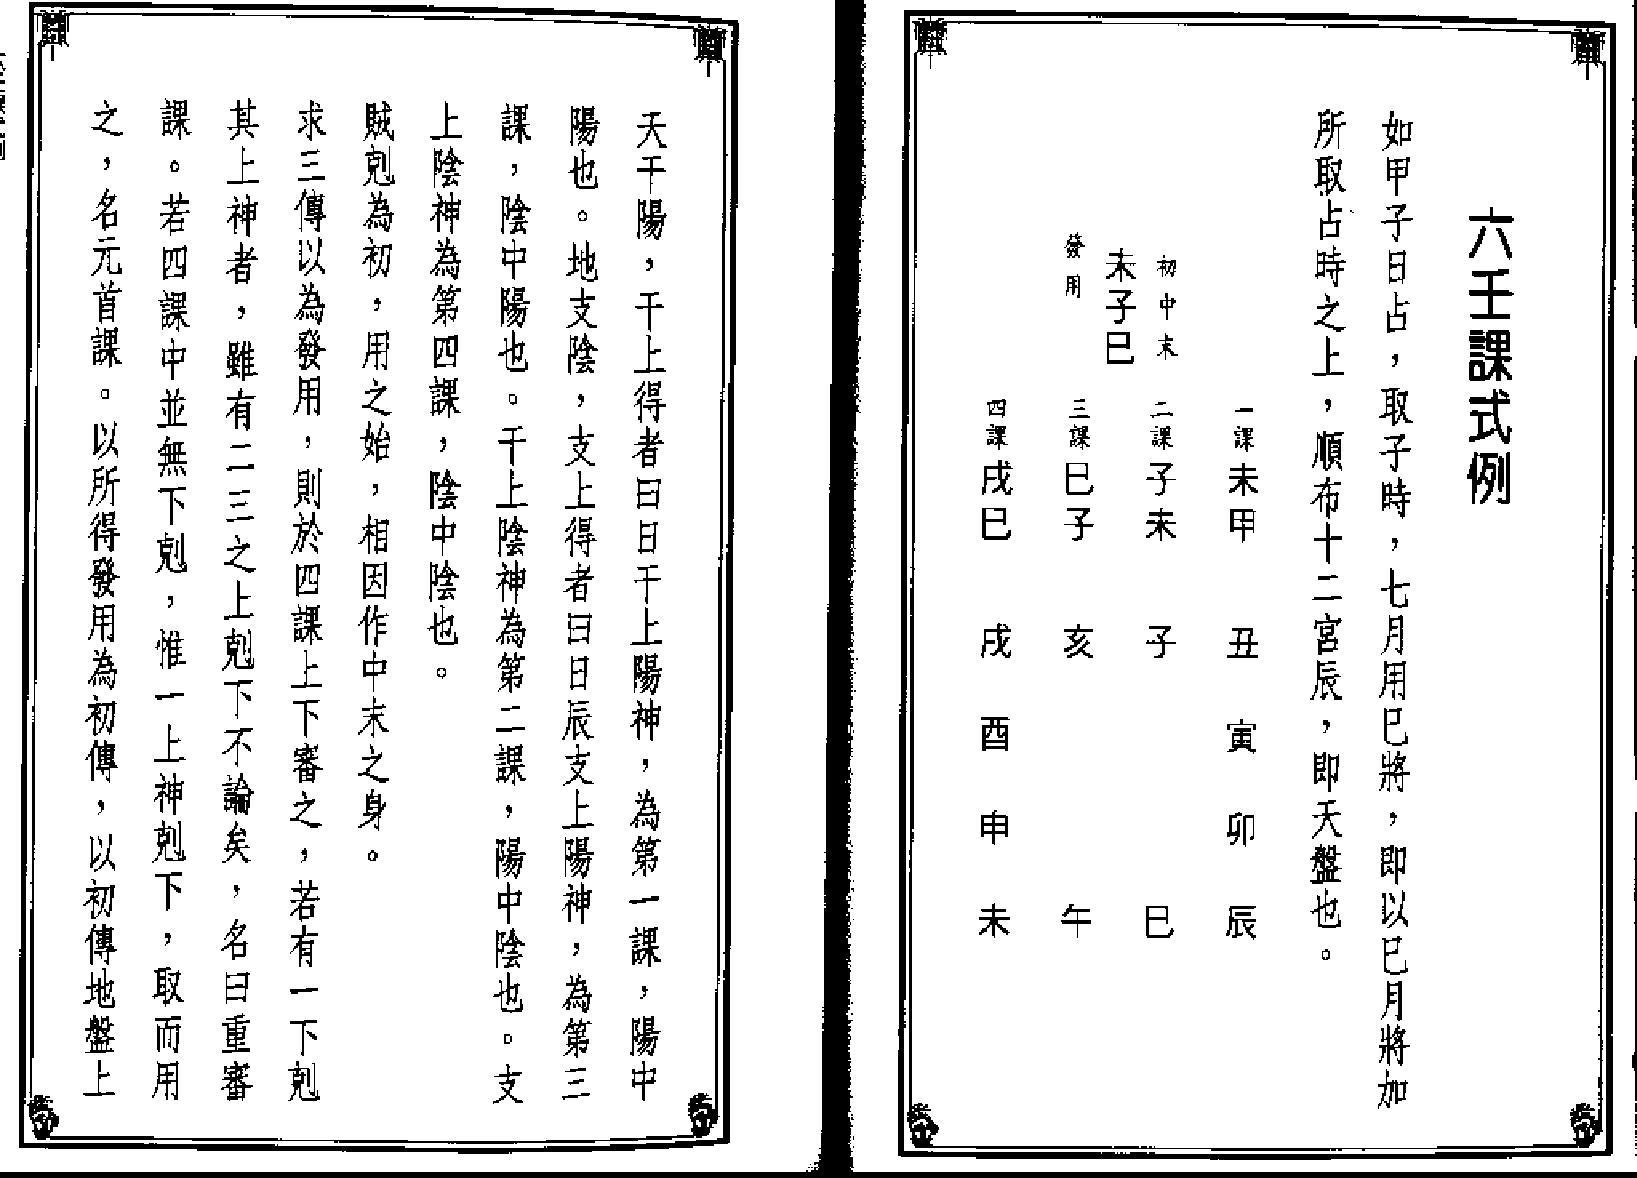 六壬課式例
如甲子日占，取子時，七月用巳將，即以巳月將加
所取占時之上，順布十二宮辰，即天盤也。
初中末
未子巳
發用
一課未甲
二課子未
三課巳子
四課戌巳
丑寅卯辰
子巳
亥午
戌酉申未
天干陽，干上得者曰日干上陽神，為第一課，陽中
陽也。地支陰，支上得者曰日辰支上陽神，為第三
課，陰中陽也。干上陰神為第二課，陽中陰也。支
上陰神為第四課，陰中陰也。
賊剋為初，用之始，相因作中末之身。
求三傳以為發用，則於四課上下審之，若有一下剋
其上神者，雖有二三之上剋下不論矣，名曰重審
課。若四課中並無下剋，惟一上神剋下，取而用
之，名元首課。以所得發用為初傳，以初傳地盤上